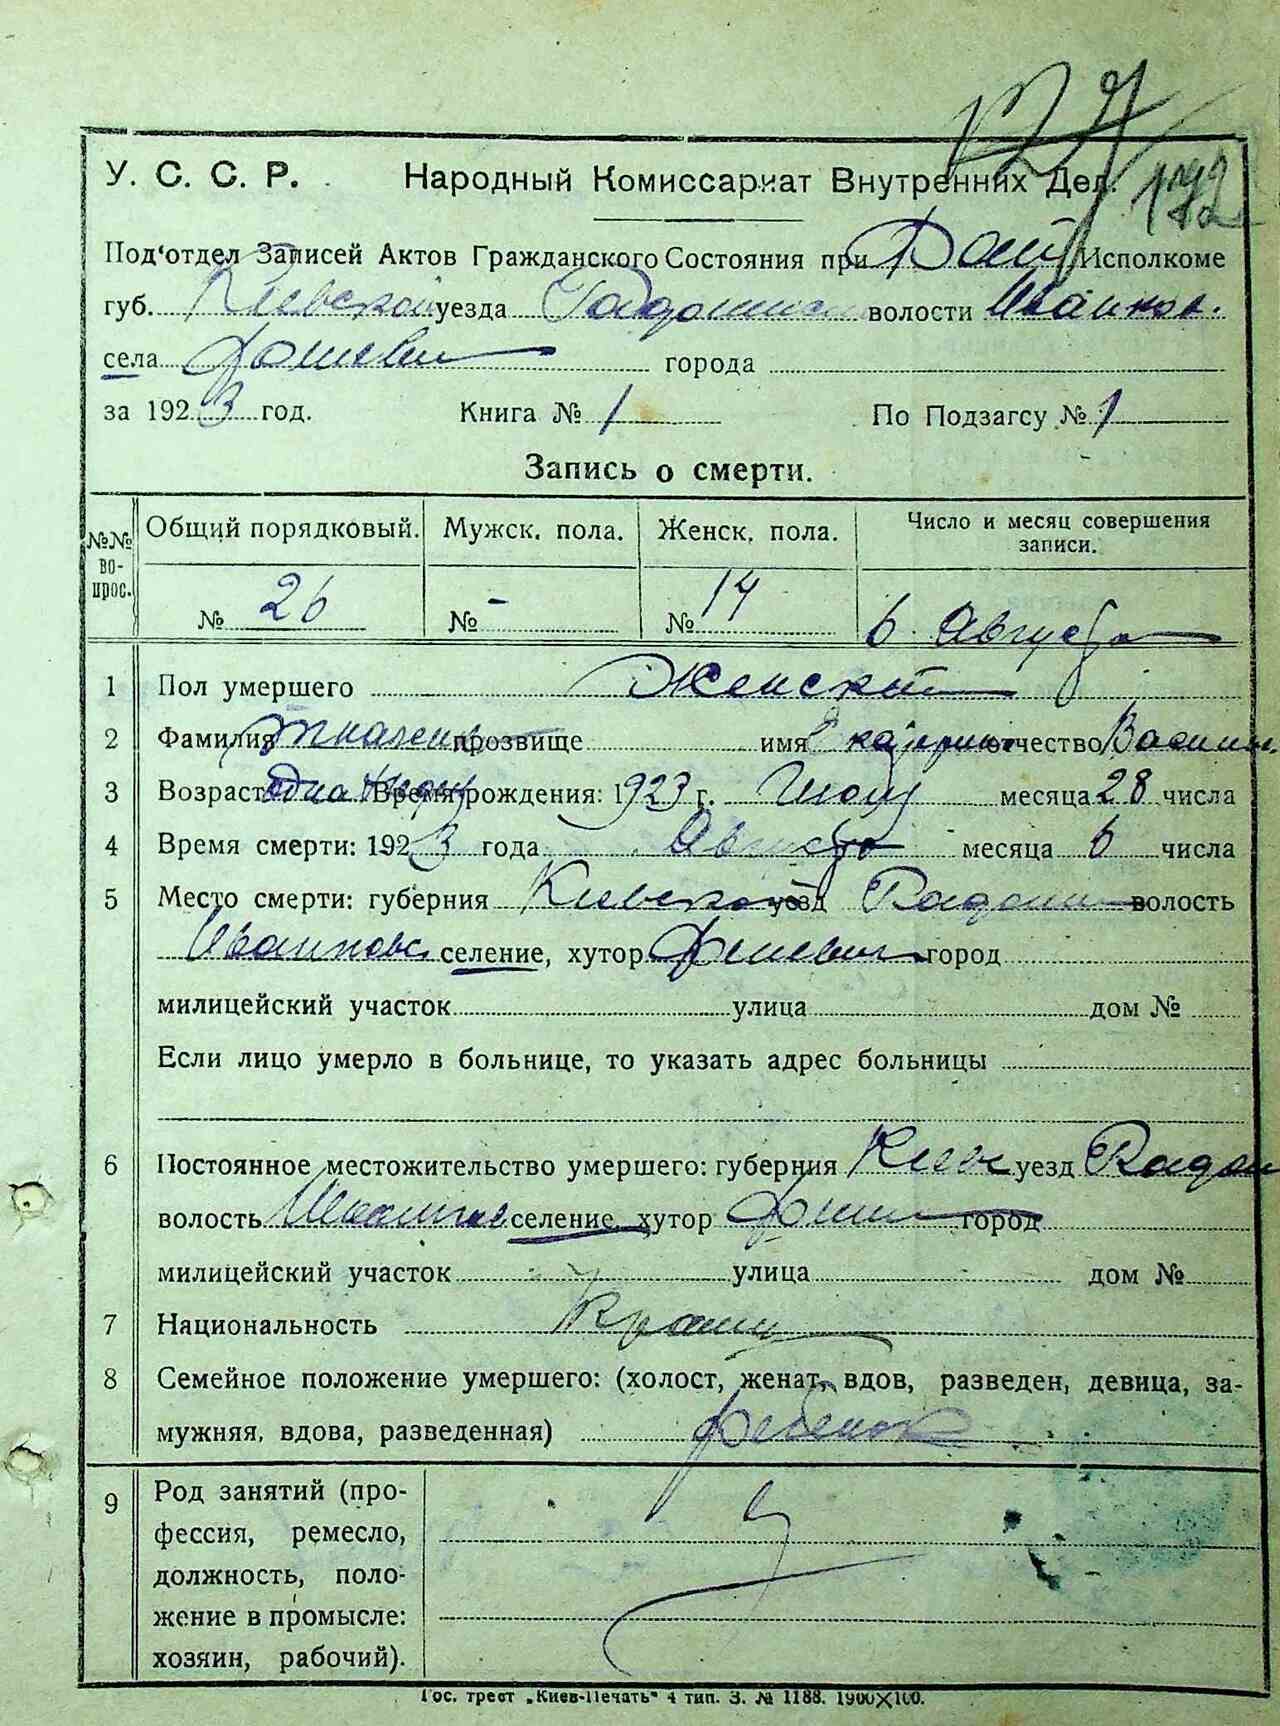 127
172
У. С. С. Р. Народный Комиссариат Внутренних Дел.
Под'отдел Записей Актов Гражданского Состояния при Рай Исполкоме
губ. Киевской уезда волости Иванков.
села города
за 1923 год. Книга № 1 По Подзагсу № 1
Запись о смерти.
№№ вопрос. Общий порядковый. Мужск. пола. Женск. пола. Число и месяц совершения записи.
№ 26 № - № 14 6 Августа
1 Пол умершего Женский
2 Фамилия Ткаченко прозвище имя отчество Васил.
3 Возраст одна Время рождения: 1923 г. Июля месяца 28 числа
4 Время смерти: 1923 года Августа месяца 6 числа
5 Место смерти: губерния Киевской уезд Радом волость
Иванковс селение, хутор город
милицейский участок улица дом №
Если лицо умерло в больнице, то указать адрес больницы
6 Постоянное местожительство умершего: губерния Киев уезд Радом
волость селение, хутор город
милицейский участок улица дом №
7 Национальность Украин
8 Семейное положение умершего: (холост, женат, вдов, разведен, девица, за-
мужняя, вдова, разведенная) ребенок
9 Род занятий (про-
фессия, ремесло,
должность, поло-
жение в промысле:
хозяин, рабочий).
Гос. трест „Киев-Печать" 4 тип. З. № 1188. 1900X100.